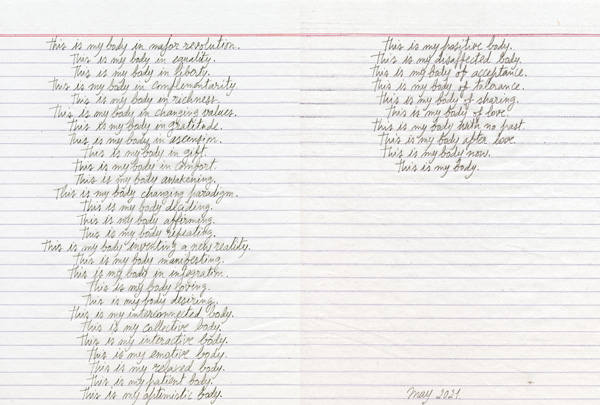 This is my body in major revolution.
This is my body in equality.
This is my body in liberty.
This is my body in complementarity.
This is my body in richness.
This is my body in changing values.
This is my body in gratitude.
This is my body in ascension.
This is my body in gift.
This is my body in comfort
This is my body awakening.
This is my body changing paradigm.
This is my body deciding.
This is my body affirming.
This is my body repeating.
This is my body inventing a new reality.
This is my body manifesting.
This is my body in integration.
This is my body loving.
This is my body desiring.
This is my interconnected body.
This is my collective body.
This is my interactive body.
This is my emotive body.
This is my relaxed body.
This is my patient body.
This is my optimistic body.
This is my positive body.
This is my disaffected body.
This is my body of acceptance.
This is my body of tolerance.
This is my body of sharing.
This is my body of love.
This is my body with no past.
This is my body after love.
This is my body now.
This is my body.
May 2021.